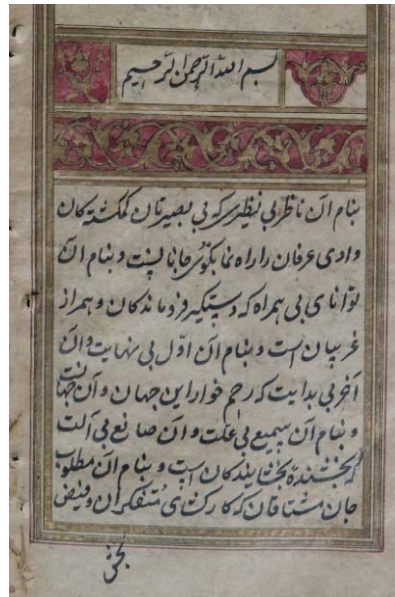 بسم الله الرحمن الرحیم
بنام آن ناظر بی نظیری که بی بصیرتان گمگشته کان
وادی عرفان را راه نما بکوی جانانیست و بنام آن
توانای بی همراه که دستگیر فرو ماندکان و همراز
غریبان است و بنام آن اول بی نهایت و آن
آخر بی بدایت که رحم خوار این جهان و آن جهان
و بنام آن سمیع بی علت و آن صانع بی آلت
که بخشنده بندکان است و بنام آن مطلوب
جان مشتاقان که کارکشای متفکران و فیض
بخش